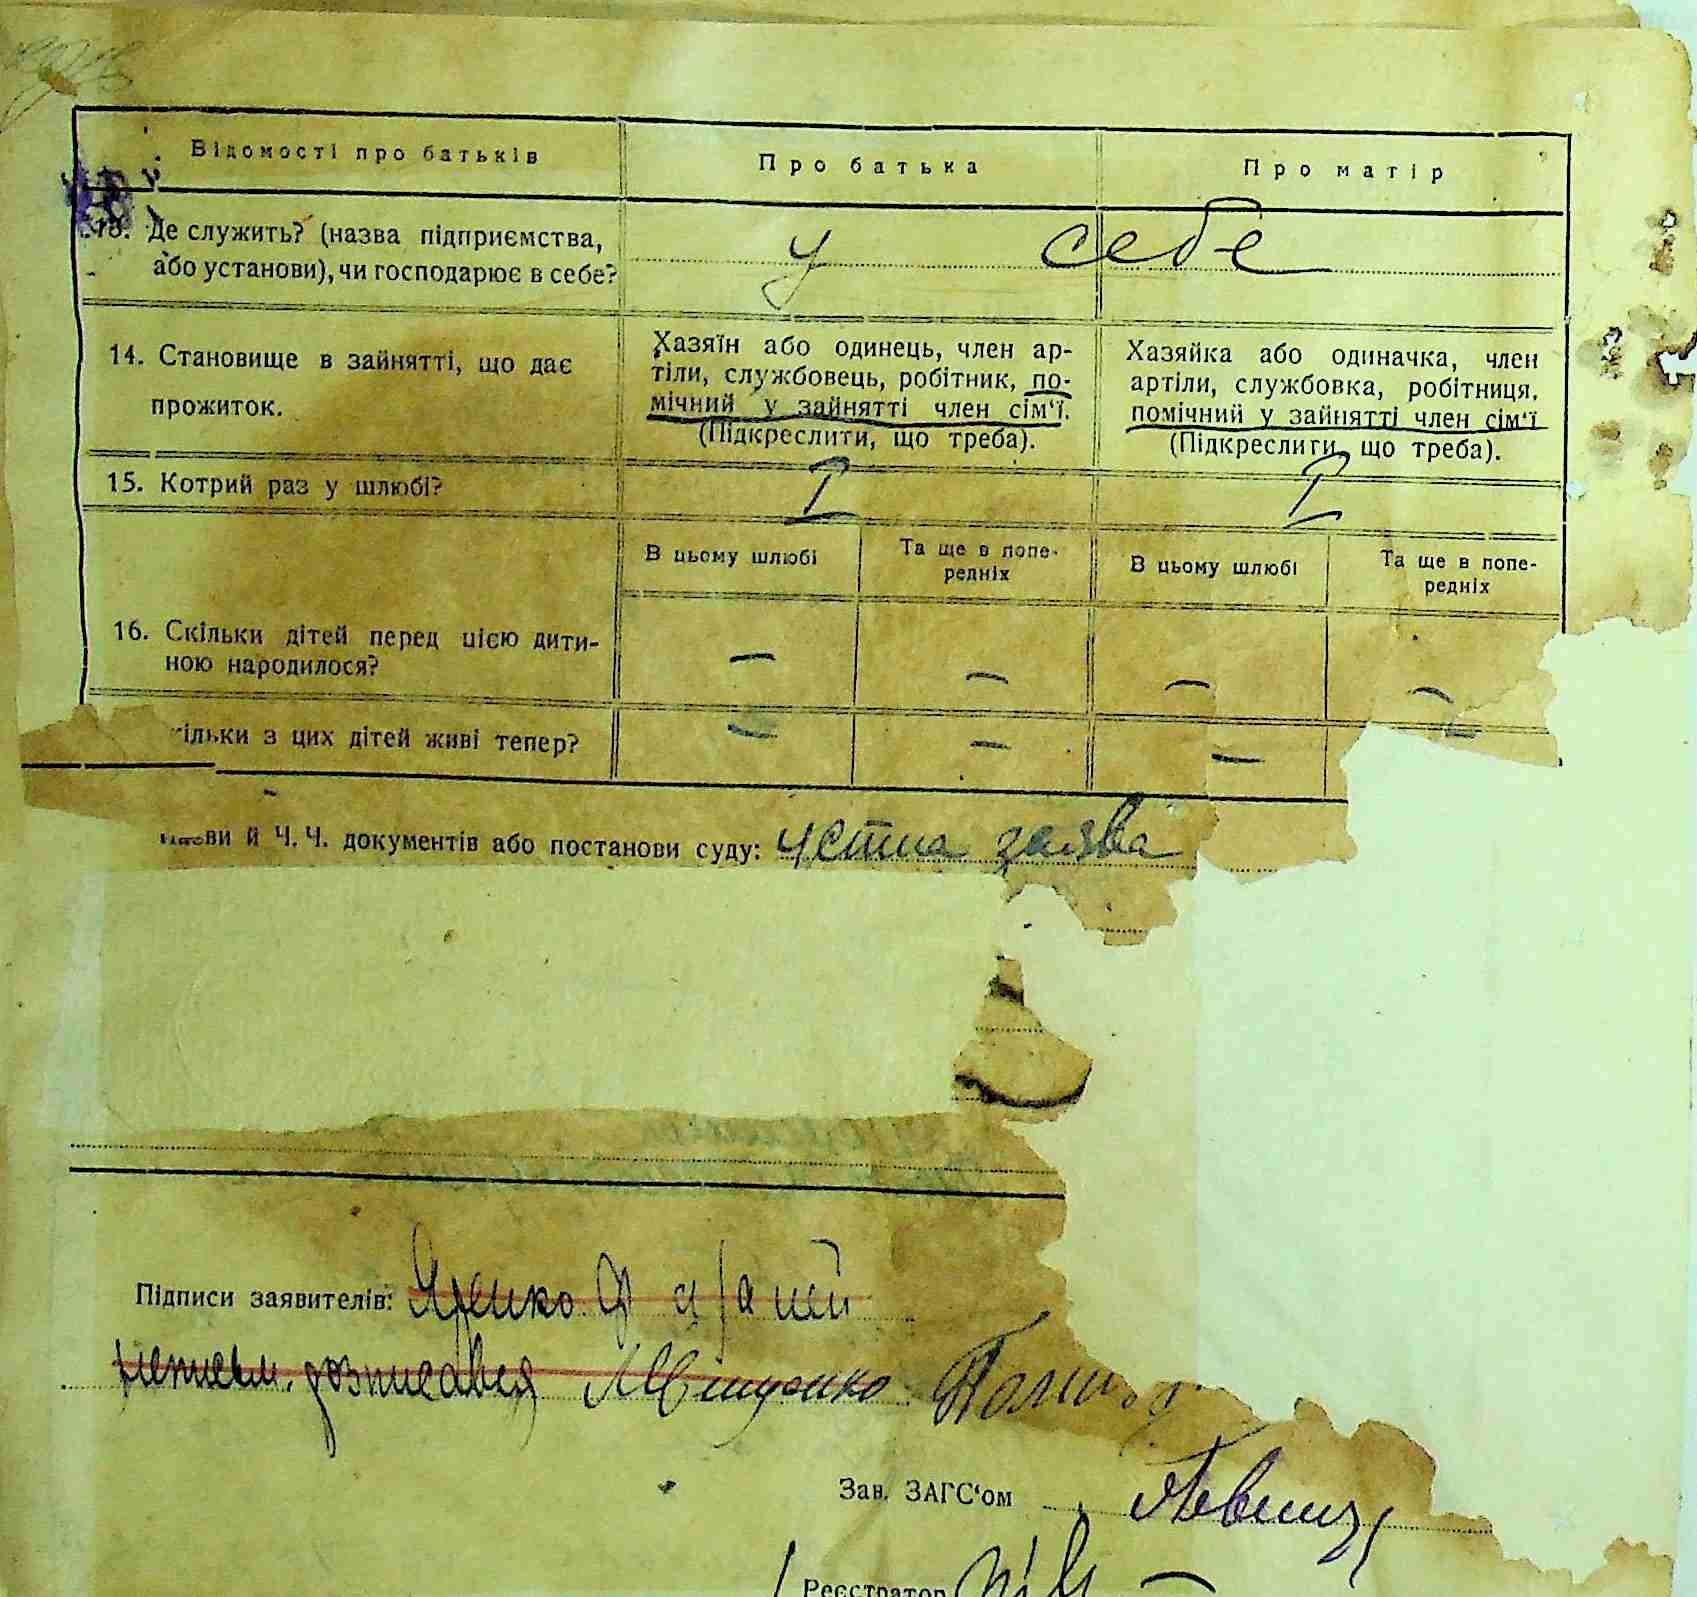 Відомості про батьків Про батька Про матір
13. Де служить? (назва підприємства,
або установи), чи господарює в себе?
у себе
14. Становище в зайнятті, що дає
прожиток.
Хазяїн або одинець, член ар-
тіли, службовець, робітник, по-
мічний у зайнятті член сім'ї.
(Підкреслити, що треба).
Хазяйка або одиначка, член
артіли, службовка, робітниця,
помічний у зайнятті член сім'ї
(Підкреслити, що треба).
15. Котрий раз у шлюбі? I I
В цьому шлюбі
Та ще в попе-
редніх
В цьому шлюбі
Та ще в попе-
редніх
16. Скільки дітей перед цією дити-
ною народилося?
— — — —
ільки з цих дітей живі тепер?
— — — —
ви й Ч. Ч. документів або постанови суду: устна заява
Підписи заявителів:
розписався
Зав. ЗАГС'ом
Реєстратор